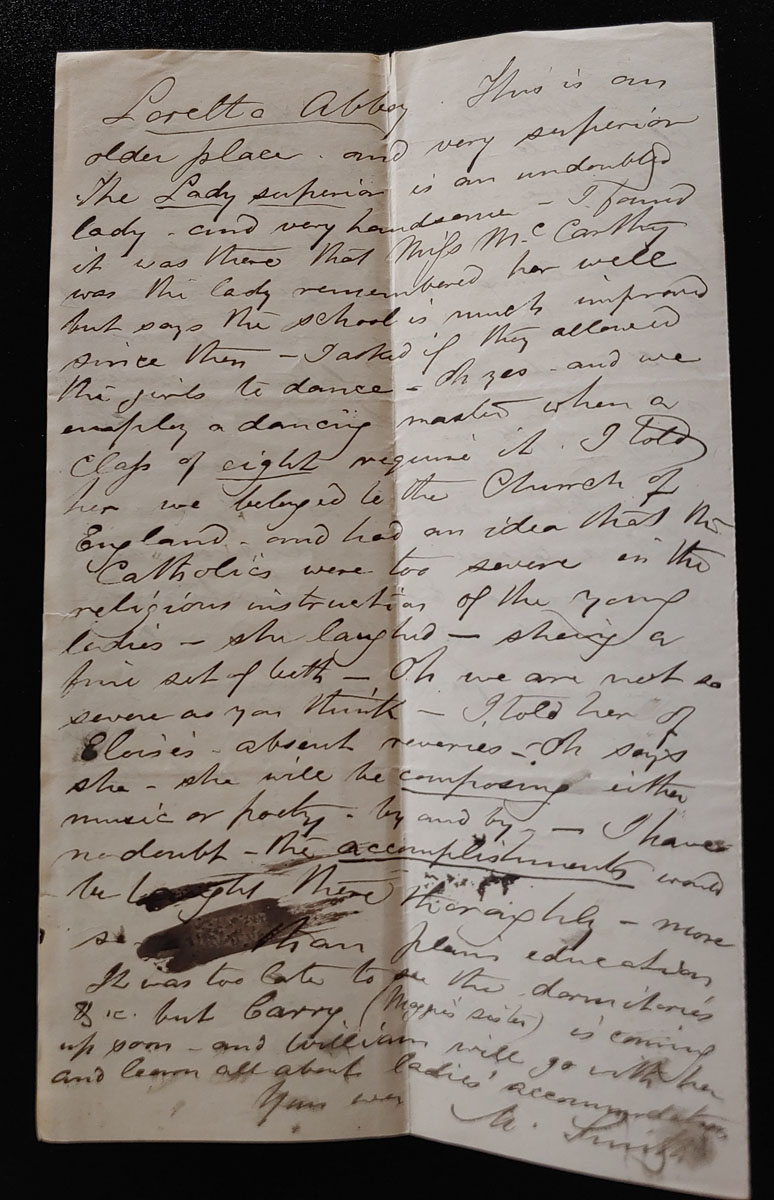 Loretto Abbey. This is an
older place. and very superior
The Lady superior is an undoubted
lady - and very handsome - I found
it was there that Miss McCarthy
was the lady remembered her well
but says the school is much improved
since then - I asked if they allowed
the girls to dance - Oh yes - and we
employ a dancing master when a
Class of eight require it. I told
her we belonged to the Church of
England - and had an idea that the
Catholics were too severe in the
religious instruction of the young
ladies - she laughed - shewing a
fine set of teeth - Oh we are not so
severe as you think - I told her of
Eloise's absent reveries - Oh says
she - she will be composing either
music or poetry - by and by - I have
no doubt - the accomplishments would
be taught there thoroughly - more
so than plain education
It was too late to see the dormitories
&c. but Carry (Maggie's sister) is coming
up soon - and William will go with her
and learn all about ladies' accommodation
Your ever
M. Smith